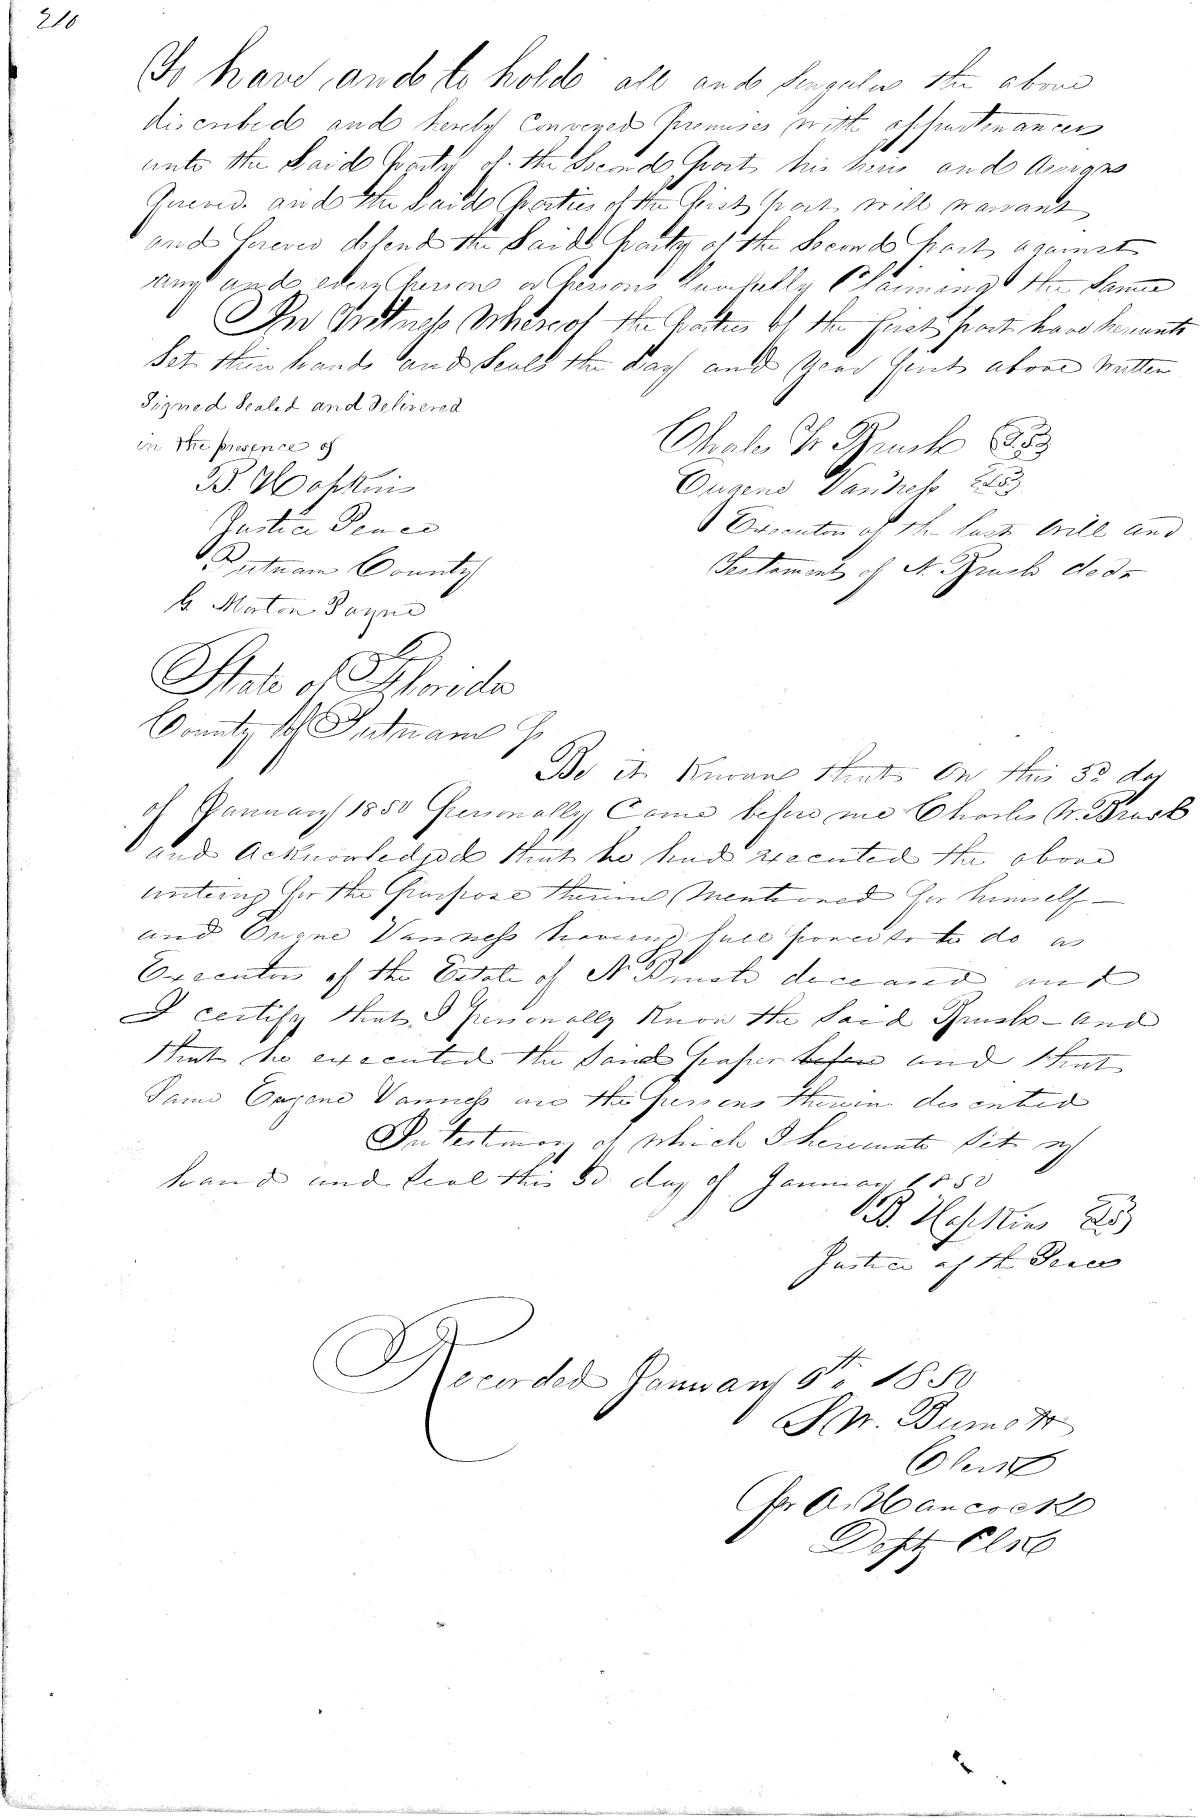 210
To have and to hold all and Singular the above
discribed and hereby Conveyed Premises with appurtenances
unto the Said Party of the Second Part his heirs and Assigns
forever. and the Said Parties of the first part will warrant
and forever defend the Said Party of the Second Part against
any and every Person or Persons Lawfully Claiming the Same
In Witness Whereof the Parties of the first part have hereunto
Set their hands and Seals the day and year first above written
Signed Sealed and Delivered
in the presence of
B. Hopkins
Justice Peace
Putnam County
G. Morton Payne
Charles W Brush
Eugene VanNess
Executors of the last Will and
Testament of N. Brush decd
State of Florida
County of Putnam
Be it Known that On this 3d day
of January 1850 Personally Came before me Charles W. Brush
and Acknowledged that he had executed the above
writing for the Purpose therein Mentioned for himself —
and Eugene Vanness having full power so to do as
Executors of the Estate of N Brush deceased and
I certify that I personally Know the Said Brush — and
that he executed the Said paper before and that
Same Eugene Vanness are the persons therein described
In testimony of which I hereunto Set my
hand and Seal this 3d day of January 1850
B. Hopkins
Justice of the Peace
Recorded January 1850
Clerk
Per A. Hancock
Depty Clk